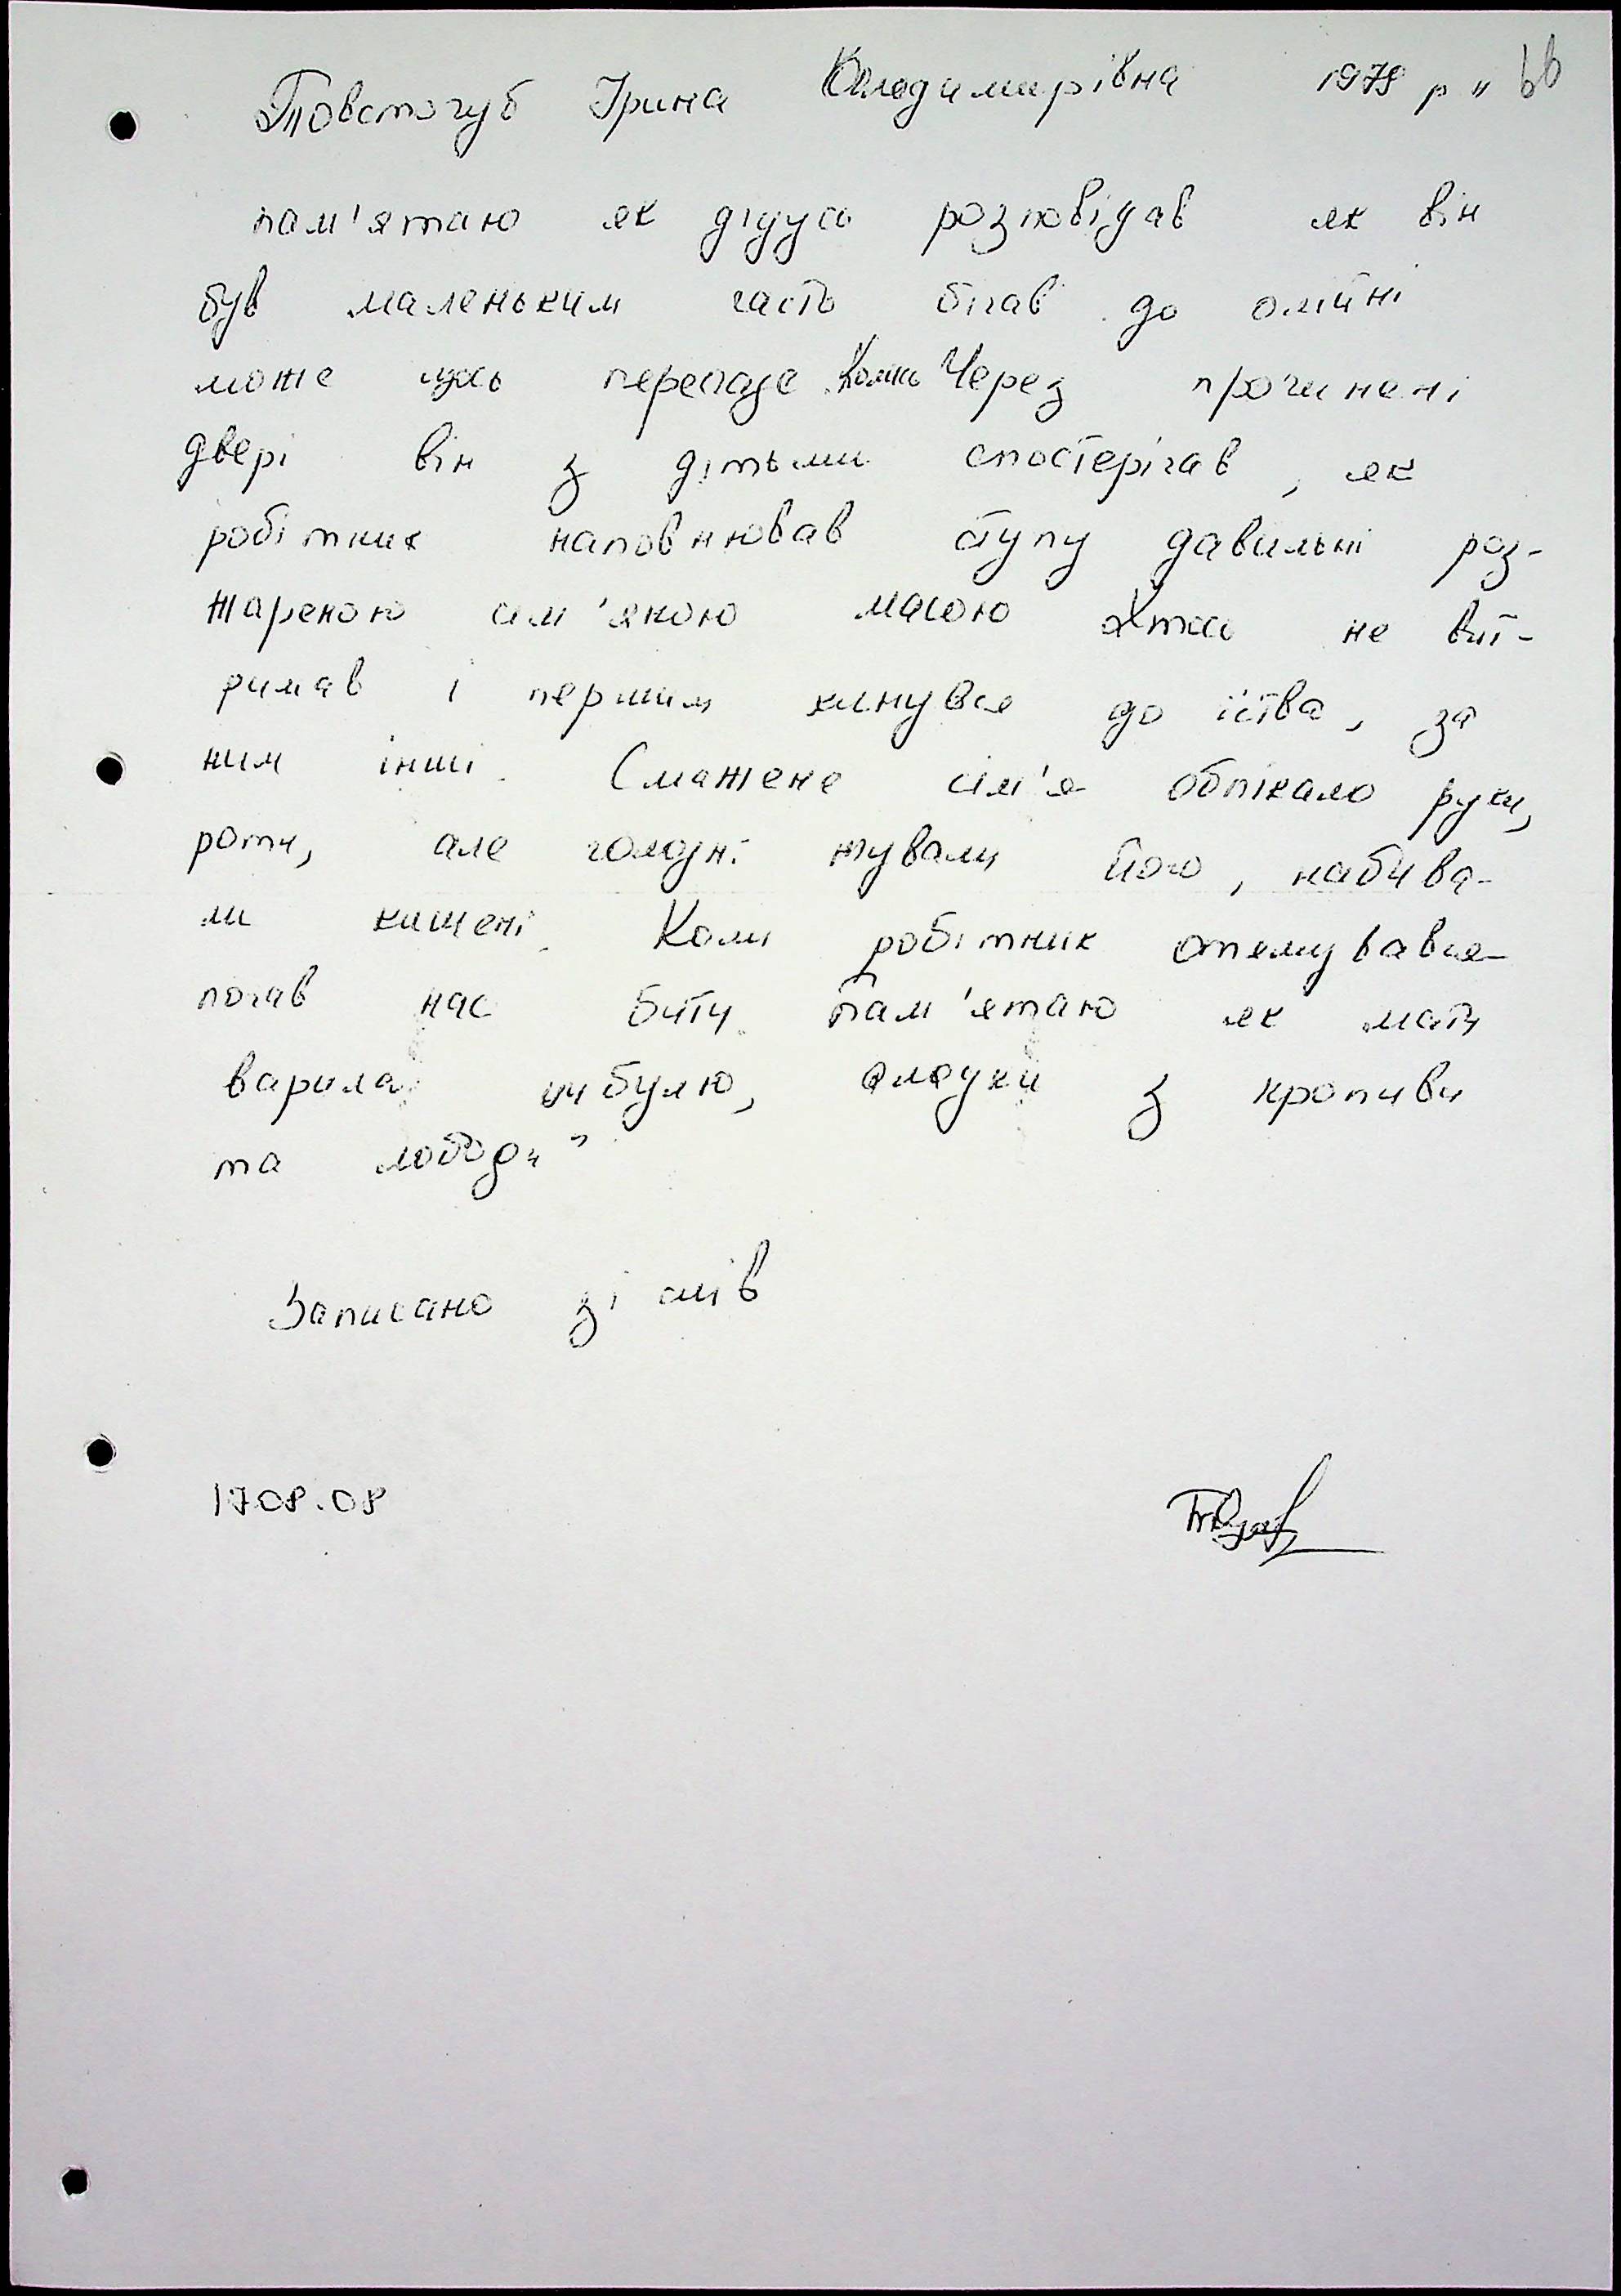 Товстогуб Ірина Володимирівна 1979 р н 66
пам'ятаю як дідусь розповідав як він
був маленьким часто бігав до олійні
може щось перепаде. Колись Через прочинені
двері він з дітьми спостерігав, як
робітник наповнював ступу давильні роз-
жареною сім'яною масою Хтось не вит-
римав і першим кинувся до їства, за
ним інші. Смажене сім'я обпікало руки,
роти, але голодні жували його, набива-
ли кишені. Коли робітник отямувався-
почав нас бити. Пам'ятаю як мати
варила цибулю, оладки з кропиви
та лободи"
Записано зі слів
17.08.08